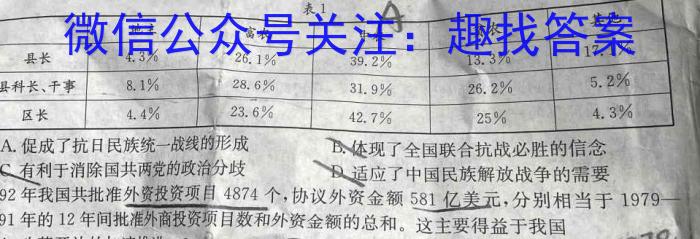 表1
微信公众号关注：趣找答案
县长 4.3% 26.1% 39.2% 13.3%
县科长、干事 8.1% 28.6% 31.9% 26.2% 5.2%
区长 4.4% 23.6% 42.7% 25% 4.3%
A.促成了抗日民族统一战线的形成 B.体现了全国联合抗战必胜的信念
C.有利于消除国共两党的政治分歧 D.适应了中国民族解放战争的需要
92年我国共批准外资投资项目4874个,协议外资金额581亿美元,分别相当于1979—
91年的12年间批准外商投资项目数和外资金额的总和。这主要得益于我国